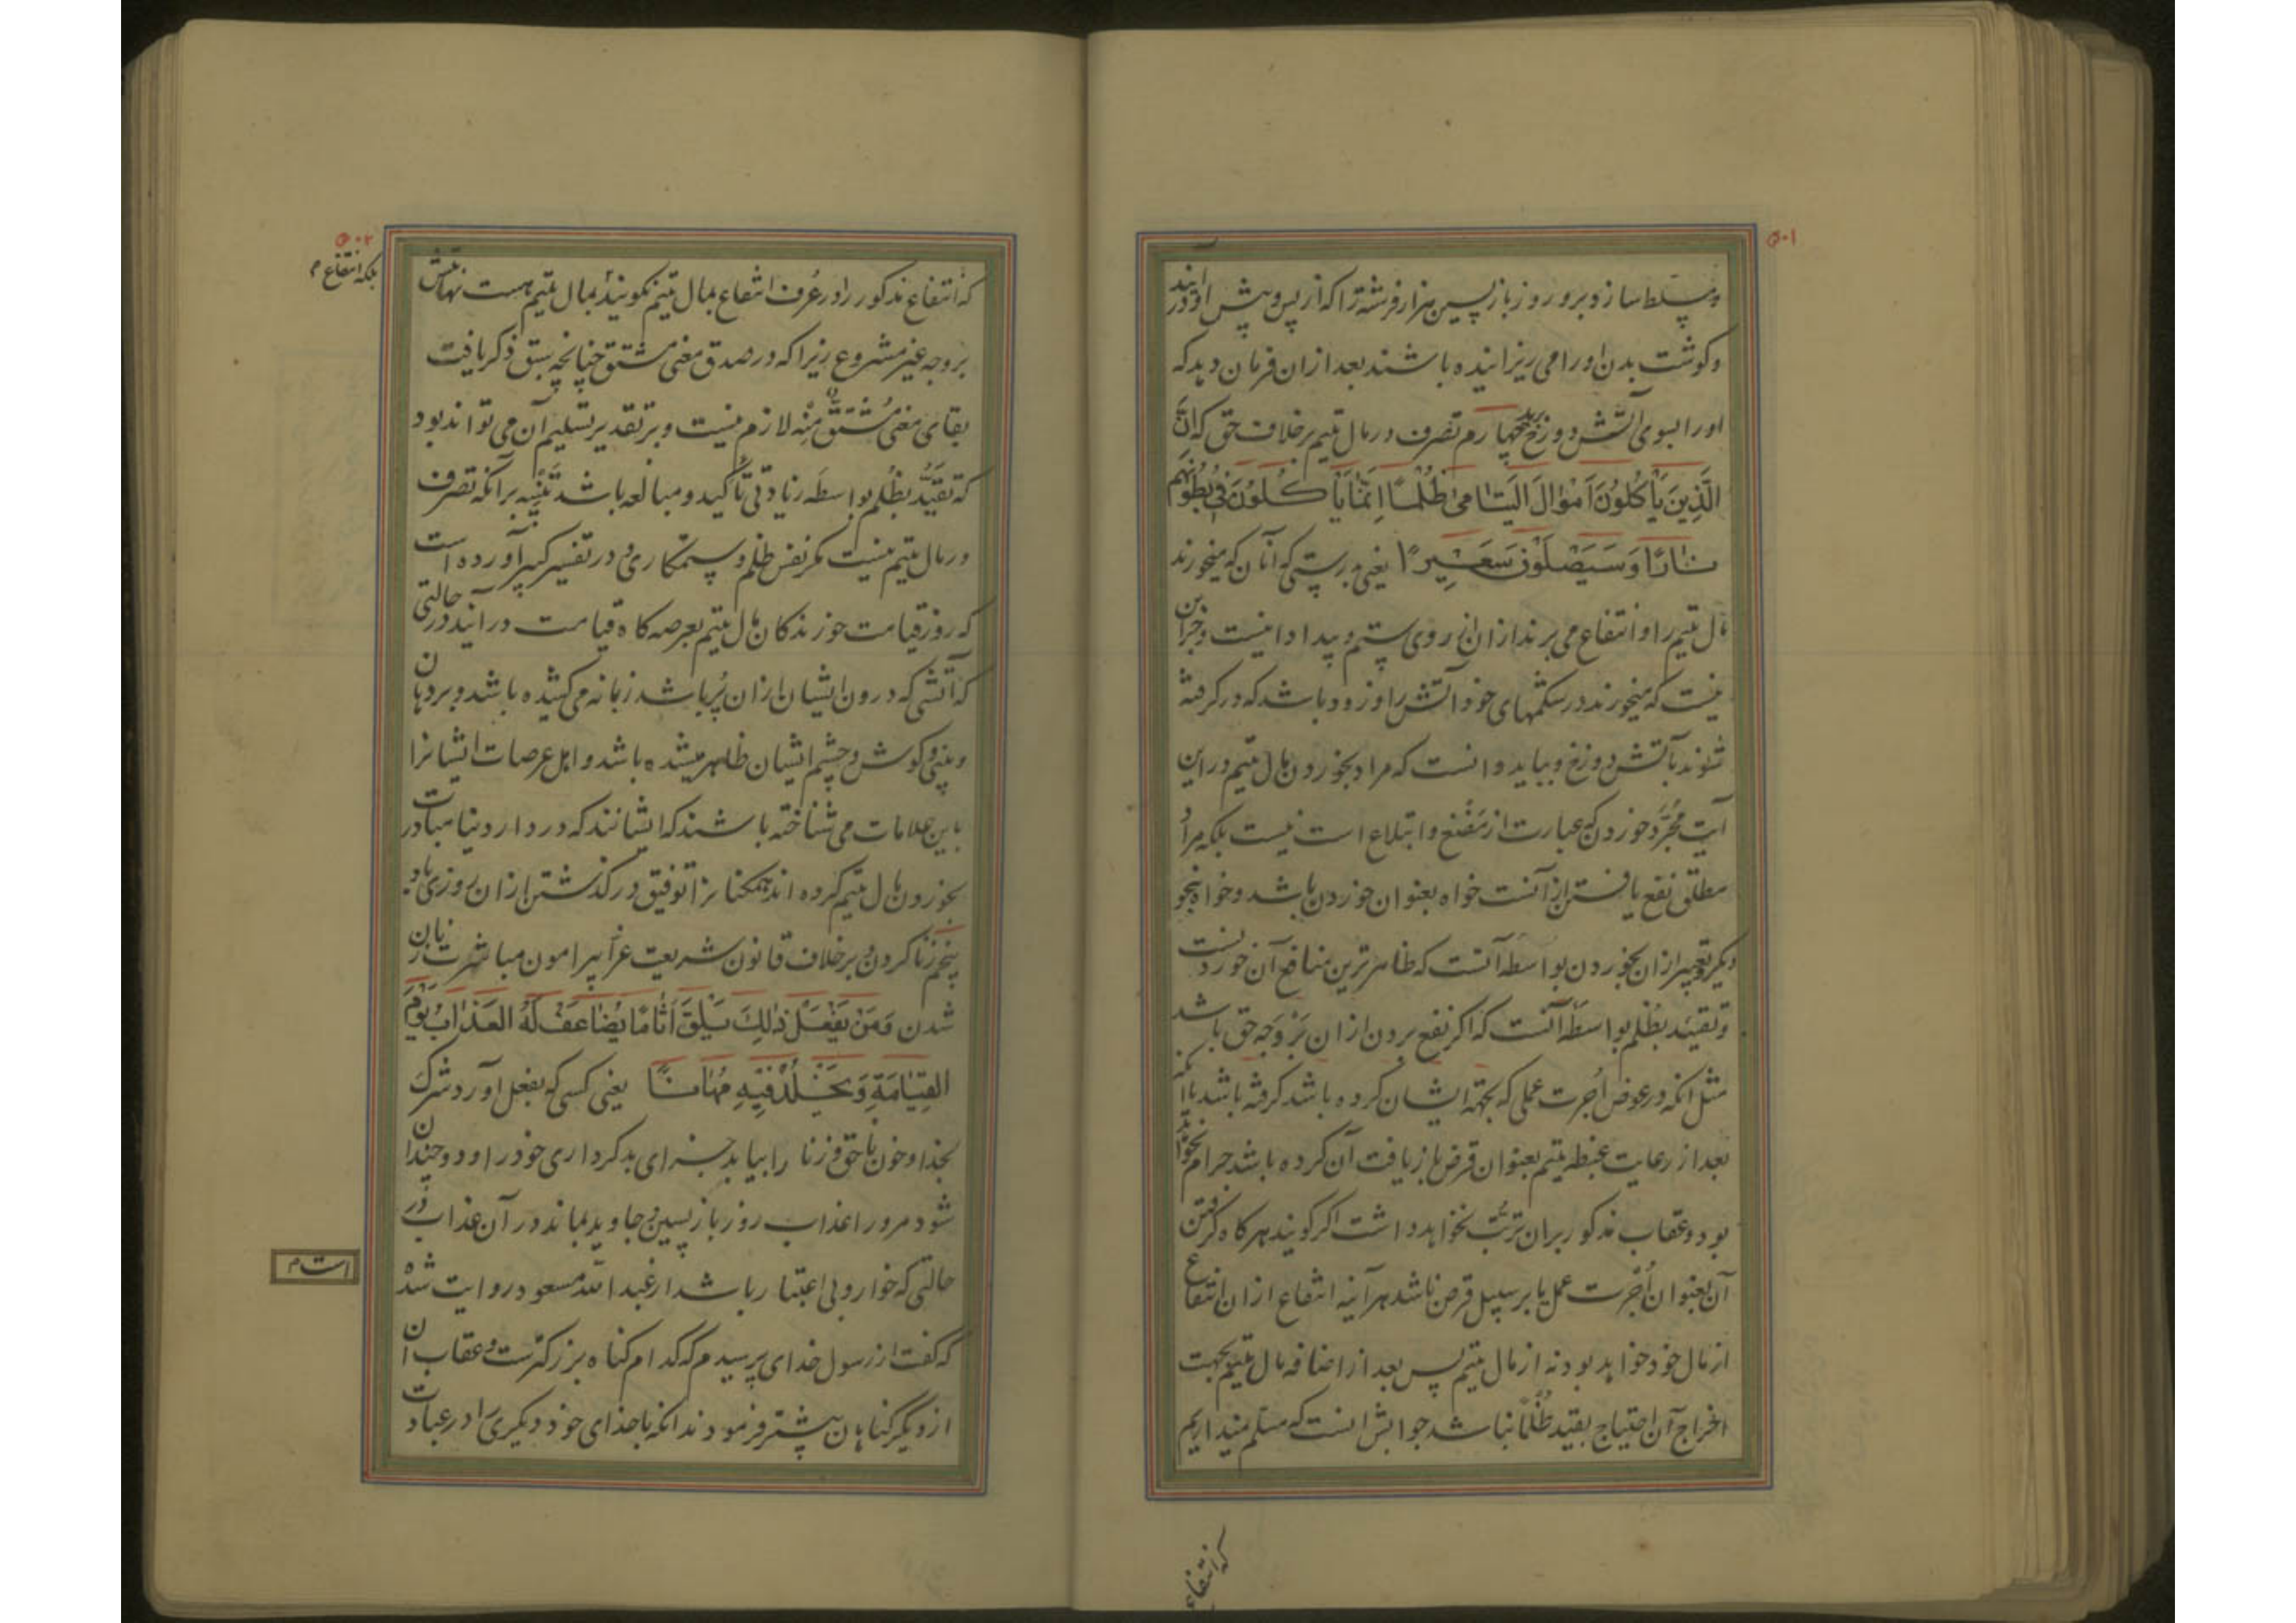 و مسلط سازد برو روز بازپسین هزار فرشته را که از پس و پیش او درآیند
و کوشت بدن او را می ریزانیده باشند بعد از ان فرمان دهد که
او را بسوی آتش دوزخ برید چهارم تصرف در مال یتیم بر خلاف حق که اِنَّ
الَّذِینَ یَأْکُلُونَ اَمْوٰالَ الْیَتٰامیٰ ظُلْمًا اِنَّمٰا یَأْکُلُونَ فِی بُطُونِهِمْ
نٰارًا وَسَیَصْلَوْنَ سَعِیرًا یعنی بدرستی که آنان که میخورند
مال یتیم را و انتفاع می برند از ان از روی ستم و بیداد اینست و جز این
نیست که میخورند در شکمهای خود آتش را و زود باشد که در کرفته
شوند بآتش دوزخ و بباید دانست که مراد بخوردن مال یتیم در این
آیت مجرّد خوردن که عبارت از مضغ و ابتلاع است نیست بلکه مراد
مطلق نفع یافتن از آنست خواه بعنوان خوردن باشد و خواه بنحو
دیکر و تعبیر از ان بخوردن بواسطه آنست که ظاهر ترین منافع آن خوردنست
و تقیید بظلم بواسطه آنست که اکر نفع بردن از ان بَرْ وَجه حق باشد
مثل انکه در عوض اُجرت عملی که بجهته ایشان کرده باشد کرفته باشد یا انکه
بعد از رعایت غبطه یتیم بعنوان قرض بازیافت آن کرده باشد حرام نخواهد
بود و عقاب مذکور بران ترتّب نخواهد داشت اکر کویند هر کاه کرفتن
آن بعنوان اُجْرت عمل یا بر سبیل قرض باشد هر آینه انتفاع از ان انتفاع
از مال خود خواهد بود نه از مال یتیم پس بعد از اضافه مال بیتیم بجهت
اخراج آن احتیاج بقید ظُلْمًا نباشد جوابش انست که مسلم نمیداریم
که انتفاع
که انتفاع مذکور را در عُرف انتفاع بمال یتیم نکویند بمال یتیم هست نهایتش
بر وجه غیر مشروع زیرا که در صدق معنی مشتق چنانچه سبق ذکر یافت
بقای معنی مُشْتَقٌّ مِنْه لازم نیست و بر تقدیر تسلیم آن می تواند بود
که تَقَیُّد بظُلم بواسطَه زیادتی تأکید و مبالغه باشد تَنْبِیه بر آنکه تصرف
در مال یتیم نیست مکر نفس ظلم و ستمکاری و در تفسیر کبیر آورده است
که روز قیامت خورندکان مال یتیم بعرصه کاه قیامت در آیند در حالتی
که آتشی که درون ایشان از ان پُر باشد زبانه می کشیده باشد و بر دهان
و بینی و کوش و چشم ایشان ظاهر میشده باشد و اهل عرصات ایشانرا
باین علامات می شناخته باشند که ایشانند که در دار دنیا مبادرت
بخوردن مال یتیم کرده اند همکنانرا توفیق در کذشتن از ان روزی باد
پنجم زنا کردن و بر خلاف قانون شریعت غرّا پیرامون مباشرت زنان
شدن وَمَنْ یَفْعَلْ ذٰلِكَ یَلْقَ اَثٰامًا یُضٰاعَفْ لَهُ الْعَذٰابُ یَوْمَ
الْقِیٰامَةِ وَیَخْلُدْ فِیهِ مُهٰانًا یعنی کسی که بفعل آورد شرک
بخدا و خون ناحق و زنا را بیابد جزای بدکرداری خود را و دو چندان
شود مرورا عذاب روز بازپسین و جاوید بماند در آن عذاب در
حالتی که خوار و بی اعتبار باشد از عبدالله مسعود روایت شده
که کفت از رسول خدای پرسیدم که کدام کناه بزرکترست و عقاب آن
از دیکر کناهان بیشتر فرمودند انکه با خدای خود دیکری را در عبادت
بلکه انتفاع م
است م